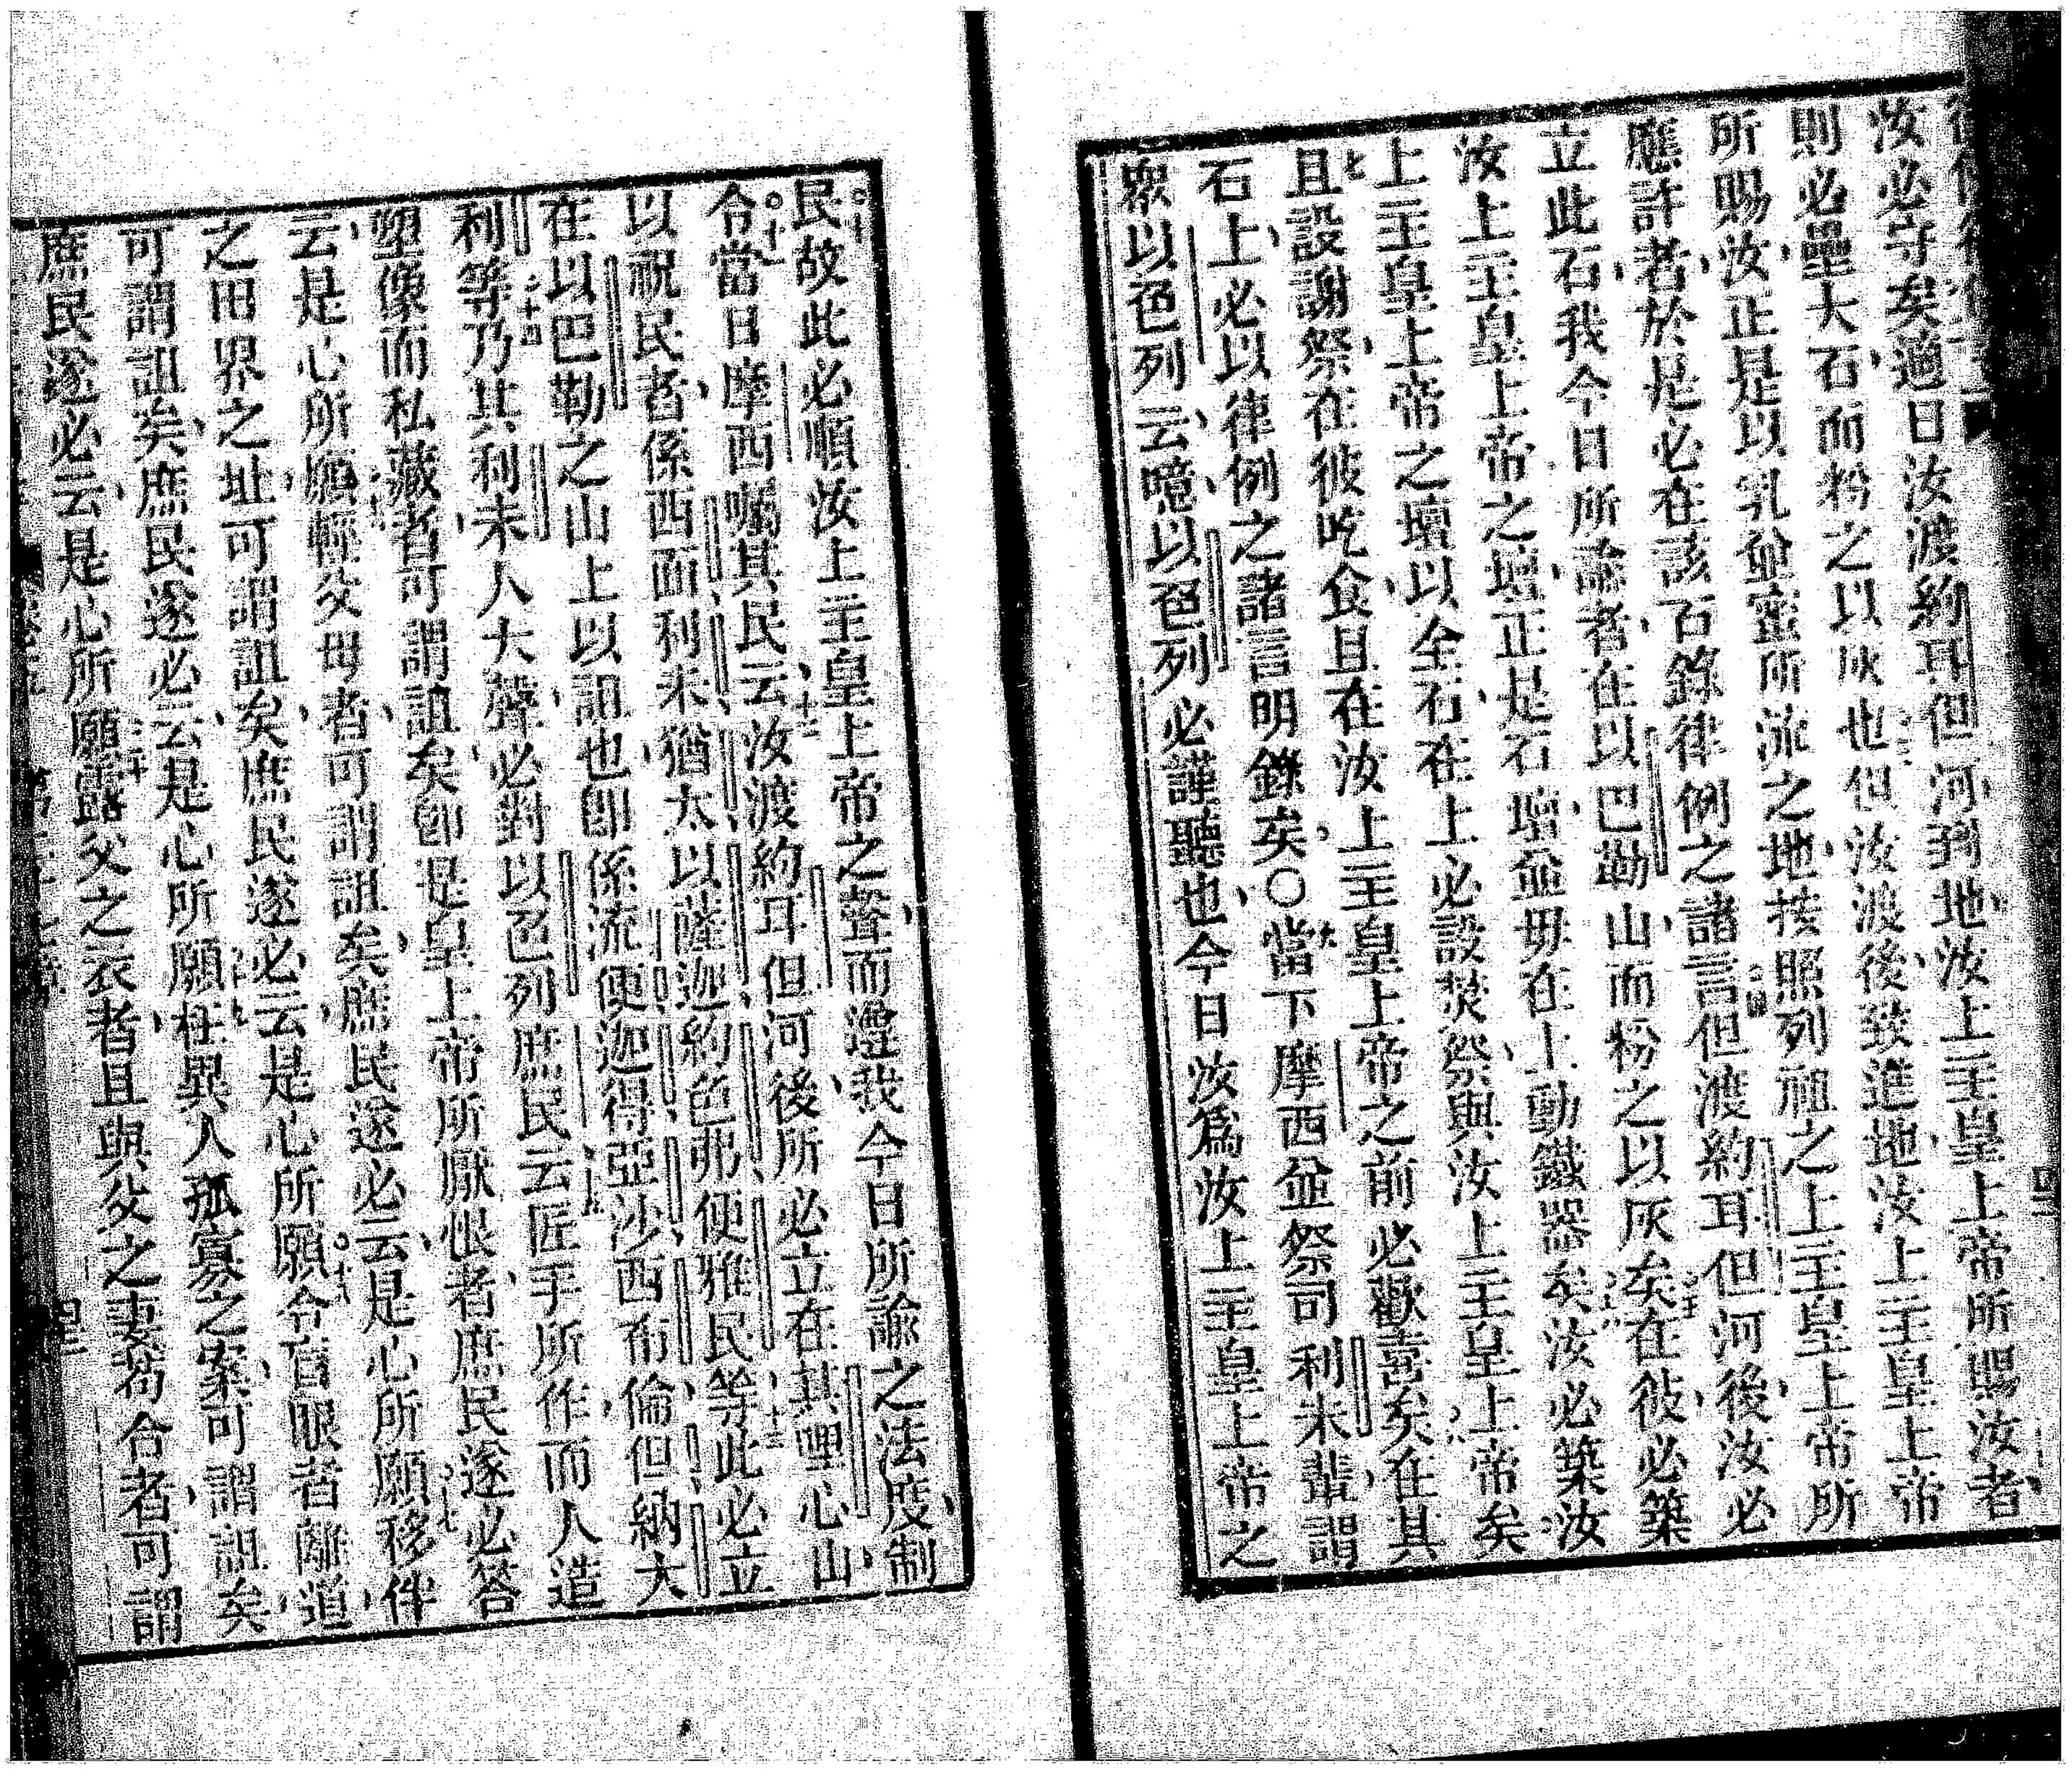 汝必守矣適日汝渡約耳但河到地汝上主皇上帝所賜汝者
則必壘大石而粉之以灰也但汝渡後致進地汝上主皇上帝
所賜汝正是以乳並蜜所流之地按照列祖之上主皇上帝所
應許者於是必在該石錄律例之諸言但渡約耳但河後汝必
立此石我今日所諭者在以巴勒山而粉之以灰矣在彼必築
汝上主皇上帝之壇正是石壇並毋在上動鐵器矣汝必築汝
上主皇上帝之壇以全石在上必設焚祭與汝上主皇上帝矣
且設謝祭在彼吃食且在汝上主皇上帝之前必歡喜矣在其
石上必以律例之諸言明錄矣〇當下摩西並祭司利未輩謂
眾以色列云噫以色列必謹聽也今日汝為汝上主皇上帝之
民故此必順汝上主皇上帝之聲而遵我今日所諭之法度制
令當日摩西囑其民云汝渡約耳但河後所必立在其哩心山
以祝民者係西面利未猶太以薩迦約色弗便雅民等此必立
在以巴勒之山上以詛也即係流便迦得亞沙西布倫但納大
利等乃其利未人大聲必對以色列庶民云匠手所作而人造
塑像而私藏者可謂詛矣即是皇上帝所厭恨者庶民遂必答
云是心所願輕父母者可謂詛矣庶民遂必云是心所願移伴
之田界之址可謂詛矣庶民遂必云是心所願令盲眼者離道
可謂詛矣庶民遂必云是心所願枉異人孤寡之案可謂詛矣
庶民遂必云是心所願露父之衣者且與父之妻苟合者可謂